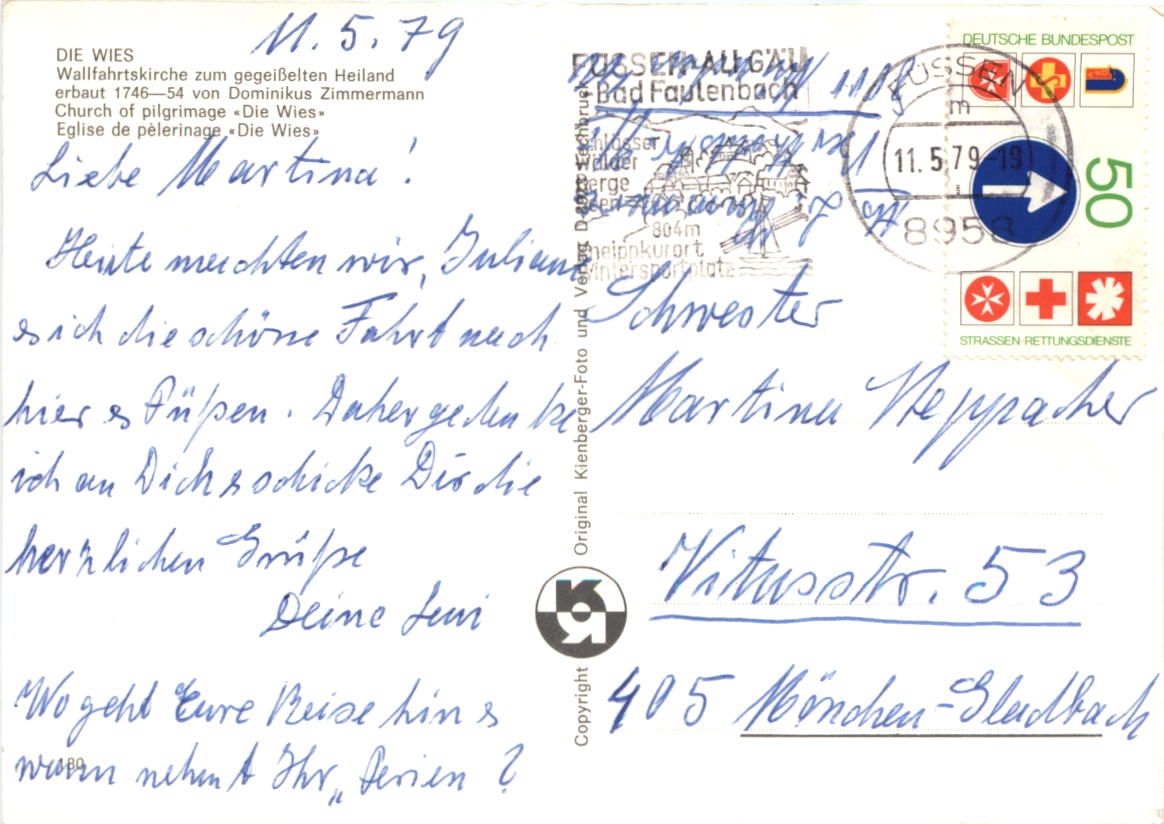 11.5.79
DIE WIES
Wallfahrtskirche zum gegeißelten Heiland
erbaut 1746—54 von Dominikus Zimmermann
Church of pilgrimage «Die Wies»
Eglise de pèlerinage «Die Wies»
Liebe Martina!
Heute machten wir, Juliana
ich die schöne Fahrt nach
hier Füßen. Daher gedenke
ich an Dich schicke Dir die
herzlichen Grüße
Deine
Wo geht Eure Reise hin
wann nehmt Ihr „Ferien?
180
Copyright
Original Kienberger-Foto und Verlag, D 8923 Lechbruck
FÜSSEN-ALLGÄU
-Bad Faulenbach
Schlösser
Wälder
Berge
Seen
804m
Kneippkurort
Wintersportplatz
FÜSSEN 1
m
11.5.79-19
8958
DEUTSCHE BUNDESPOST
50
STRASSEN·RETTUNGSDIENSTE
Schwester
Martina Neppacher
Vitusstr. 53
405 Mönchen-Gladbach